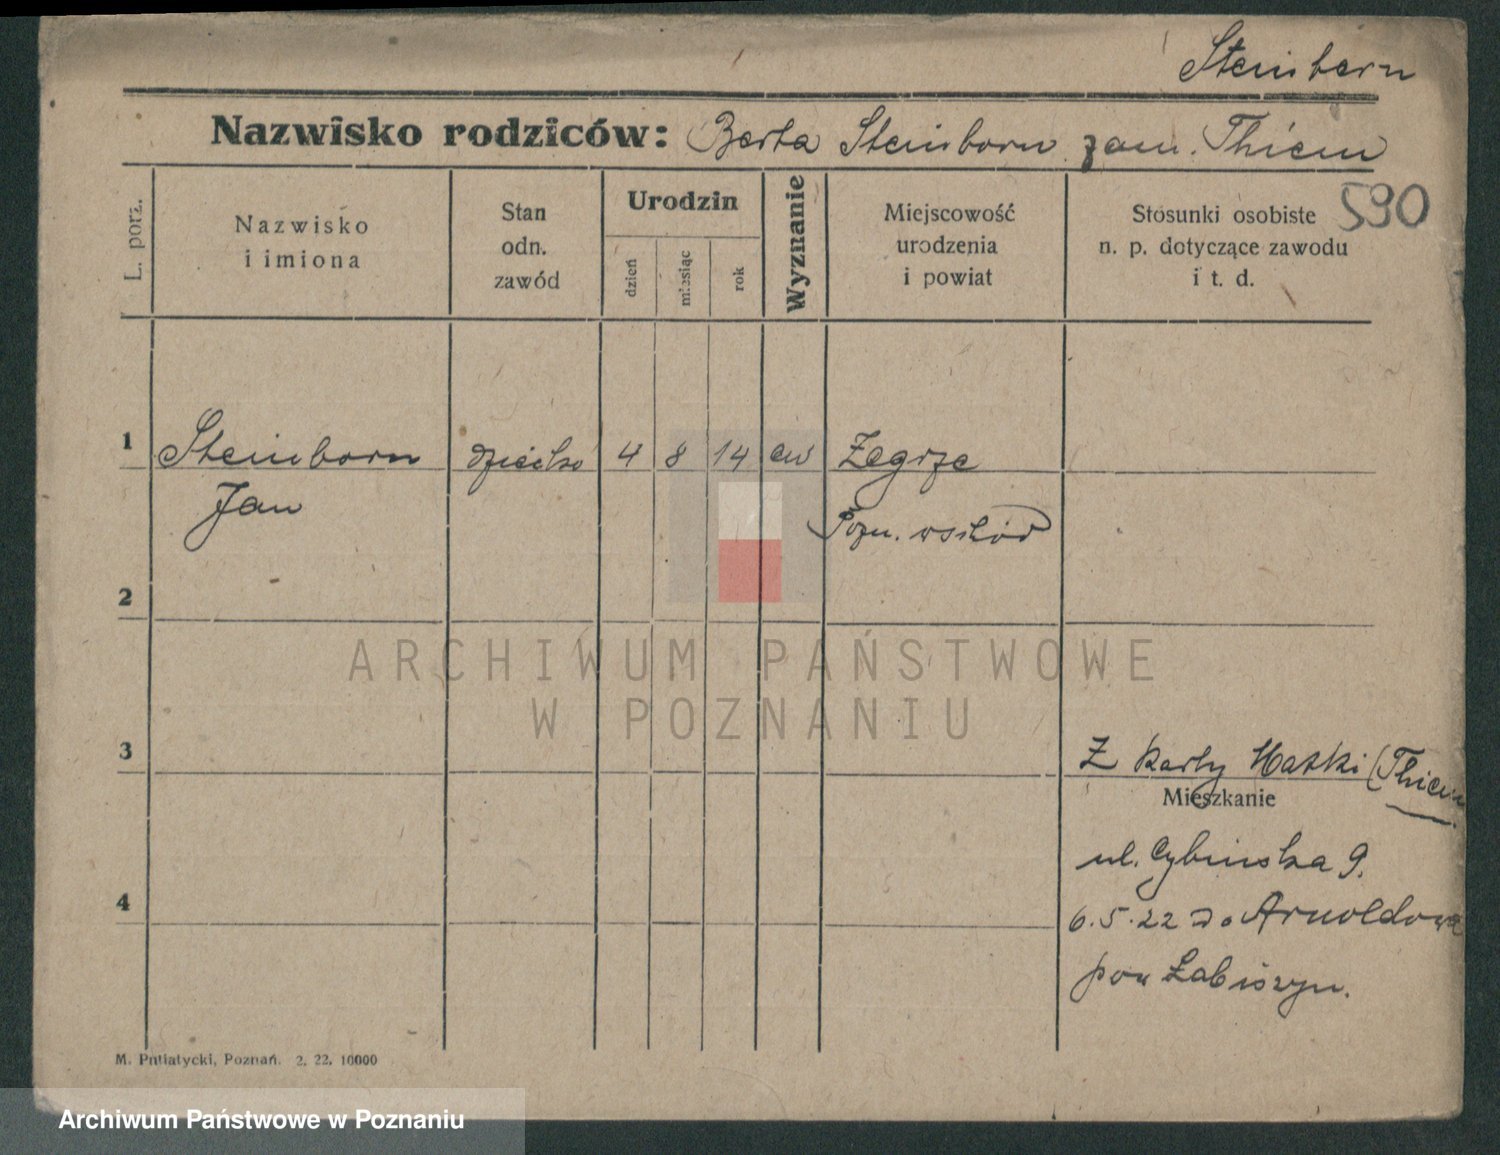 Steinborn
Nazwisko rodziców: Berta Steinborn zam. Thiem
590
L. porz.
Nazwisko
i imiona
Stan
odn.
zawód
Urodzin
dzień
miesiąc
rok
Wyznanie
Miejscowość
urodzenia
i powiat
Stosunki osobiste
n. p. dotyczące zawodu
i t. d.
1 Steinborn dziecko 4 8 14 ew Żegrze
Jan Pozn. wschód
2
ARCHIWUM PAŃSTWOWE
W POZNANIU
3
Z karty Matki (Thiem
Mieszkanie
ul. Cybińska 9.
4
6.5.22 do Arnoldowa
pow Łabiszyn.
M. Putiatycki, Poznań. 2. 22. 10000
Archiwum Państwowe w Poznaniu